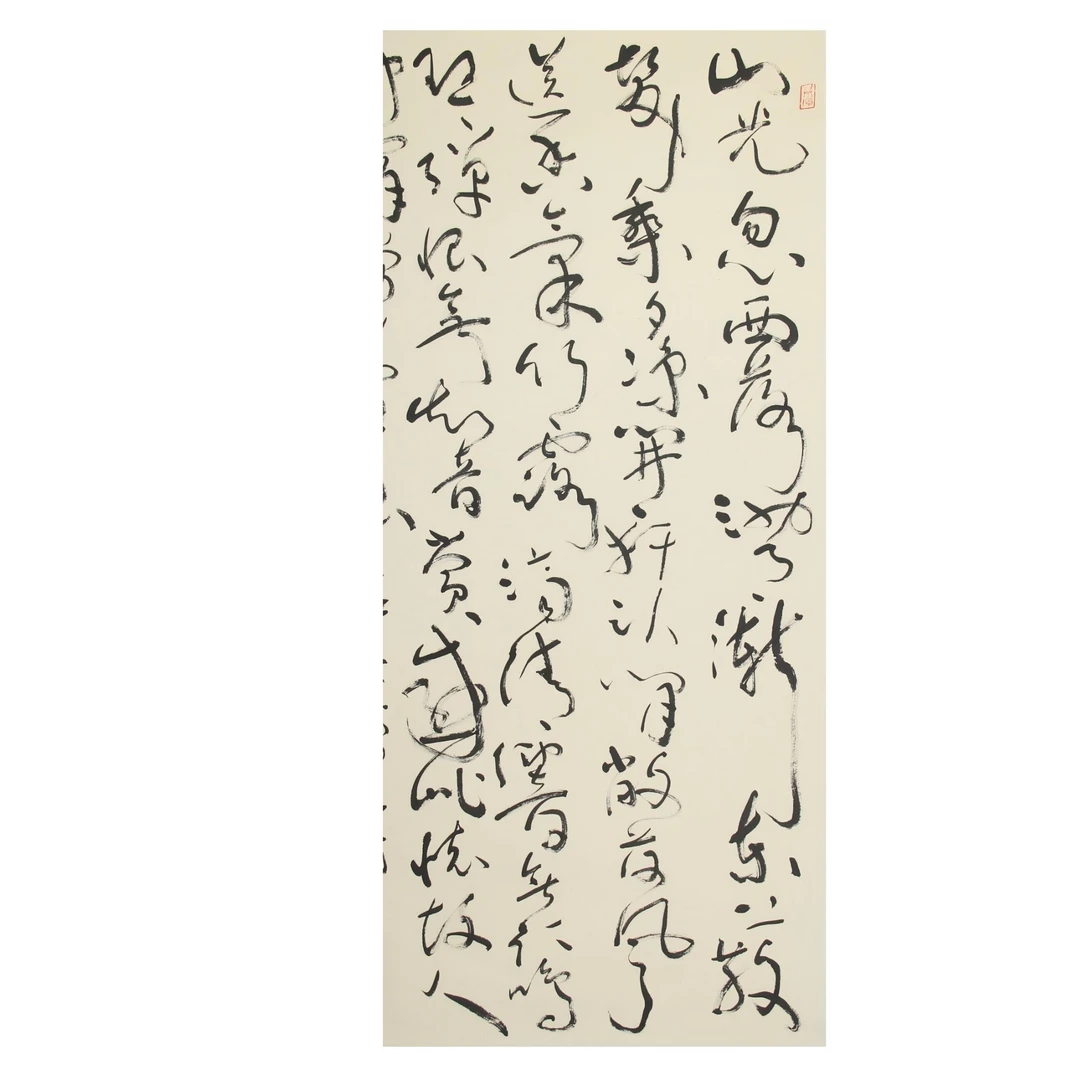 山光忽西落池月漸東上散
髮乘夕涼開軒臥閒敞荷風
送香氣竹露滴清響欲取鳴
琴彈恨無知音賞感此懷故人